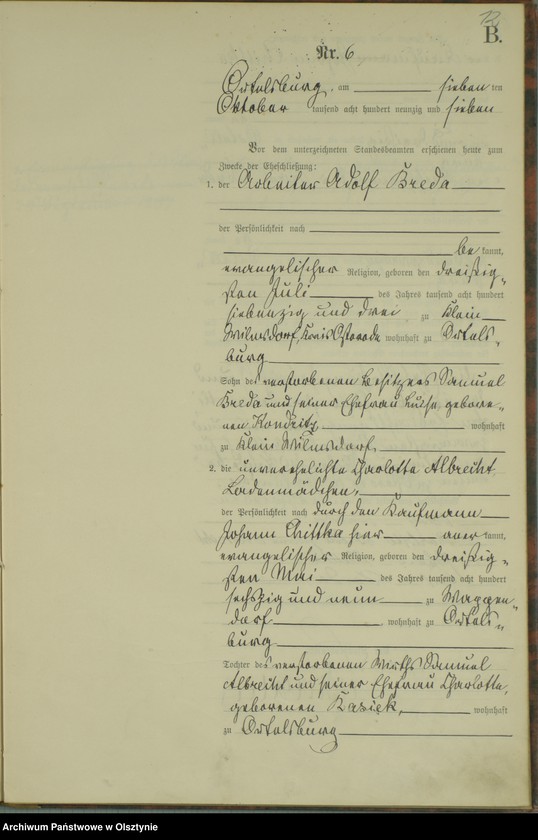 12
B.
Nr. 6
Ortelsburg, am sieben ten
Oktober tausend acht hundert neunzig und sieben
Vor dem unterzeichneten Standesbeamten erschienen heute zum
Zwecke der Eheschließung:
1. der Arbeiter Adolf Breda
der Persönlichkeit nach
be kannt,
evangelischer Religion, geboren den dreißig-
sten Juli des Jahres tausend acht hundert
siebenzig und drei zu Klein
Wilmsdorf, Kreis Osterode wohnhaft zu Ortels-
burg
Sohn des verstorbenen Besitzers Samuel
Breda und seiner Ehefrau Luise, gebore-
nen wohnhaft
zu Klein Wilmsdorf,
2. die unverehelichte Charlotte Albrecht,
Ladenmädchen,
der Persönlichkeit nach durch den Kaufmann
Johann hier aner kannt,
evangelischer Religion, geboren den dreißig-
sten Mai des Jahres tausend acht hundert
sechszig und neun zu Wappen-
dorf wohnhaft zu Ortels-
burg
Tochter des verstorbenen Wirths Samuel
Albrecht und seiner Ehefrau Charlotte,
geborenen Kasiek, wohnhaft
zu Ortelsburg
Archiwum Państwowe w Olsztynie